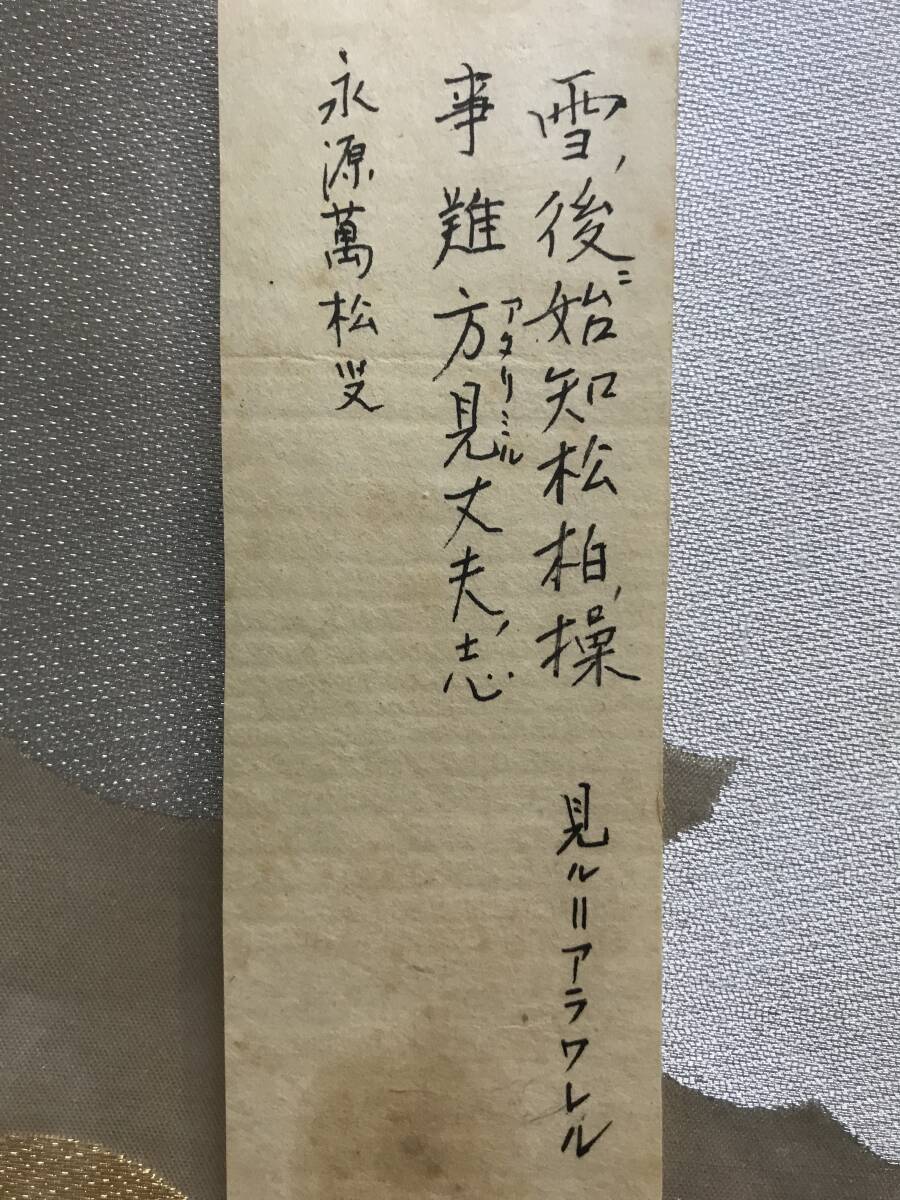 雪ノ後ニ始知松柏ノ操
見ル=アラワレル
事難方見丈夫ノ志
アタリミル
永源萬松叟